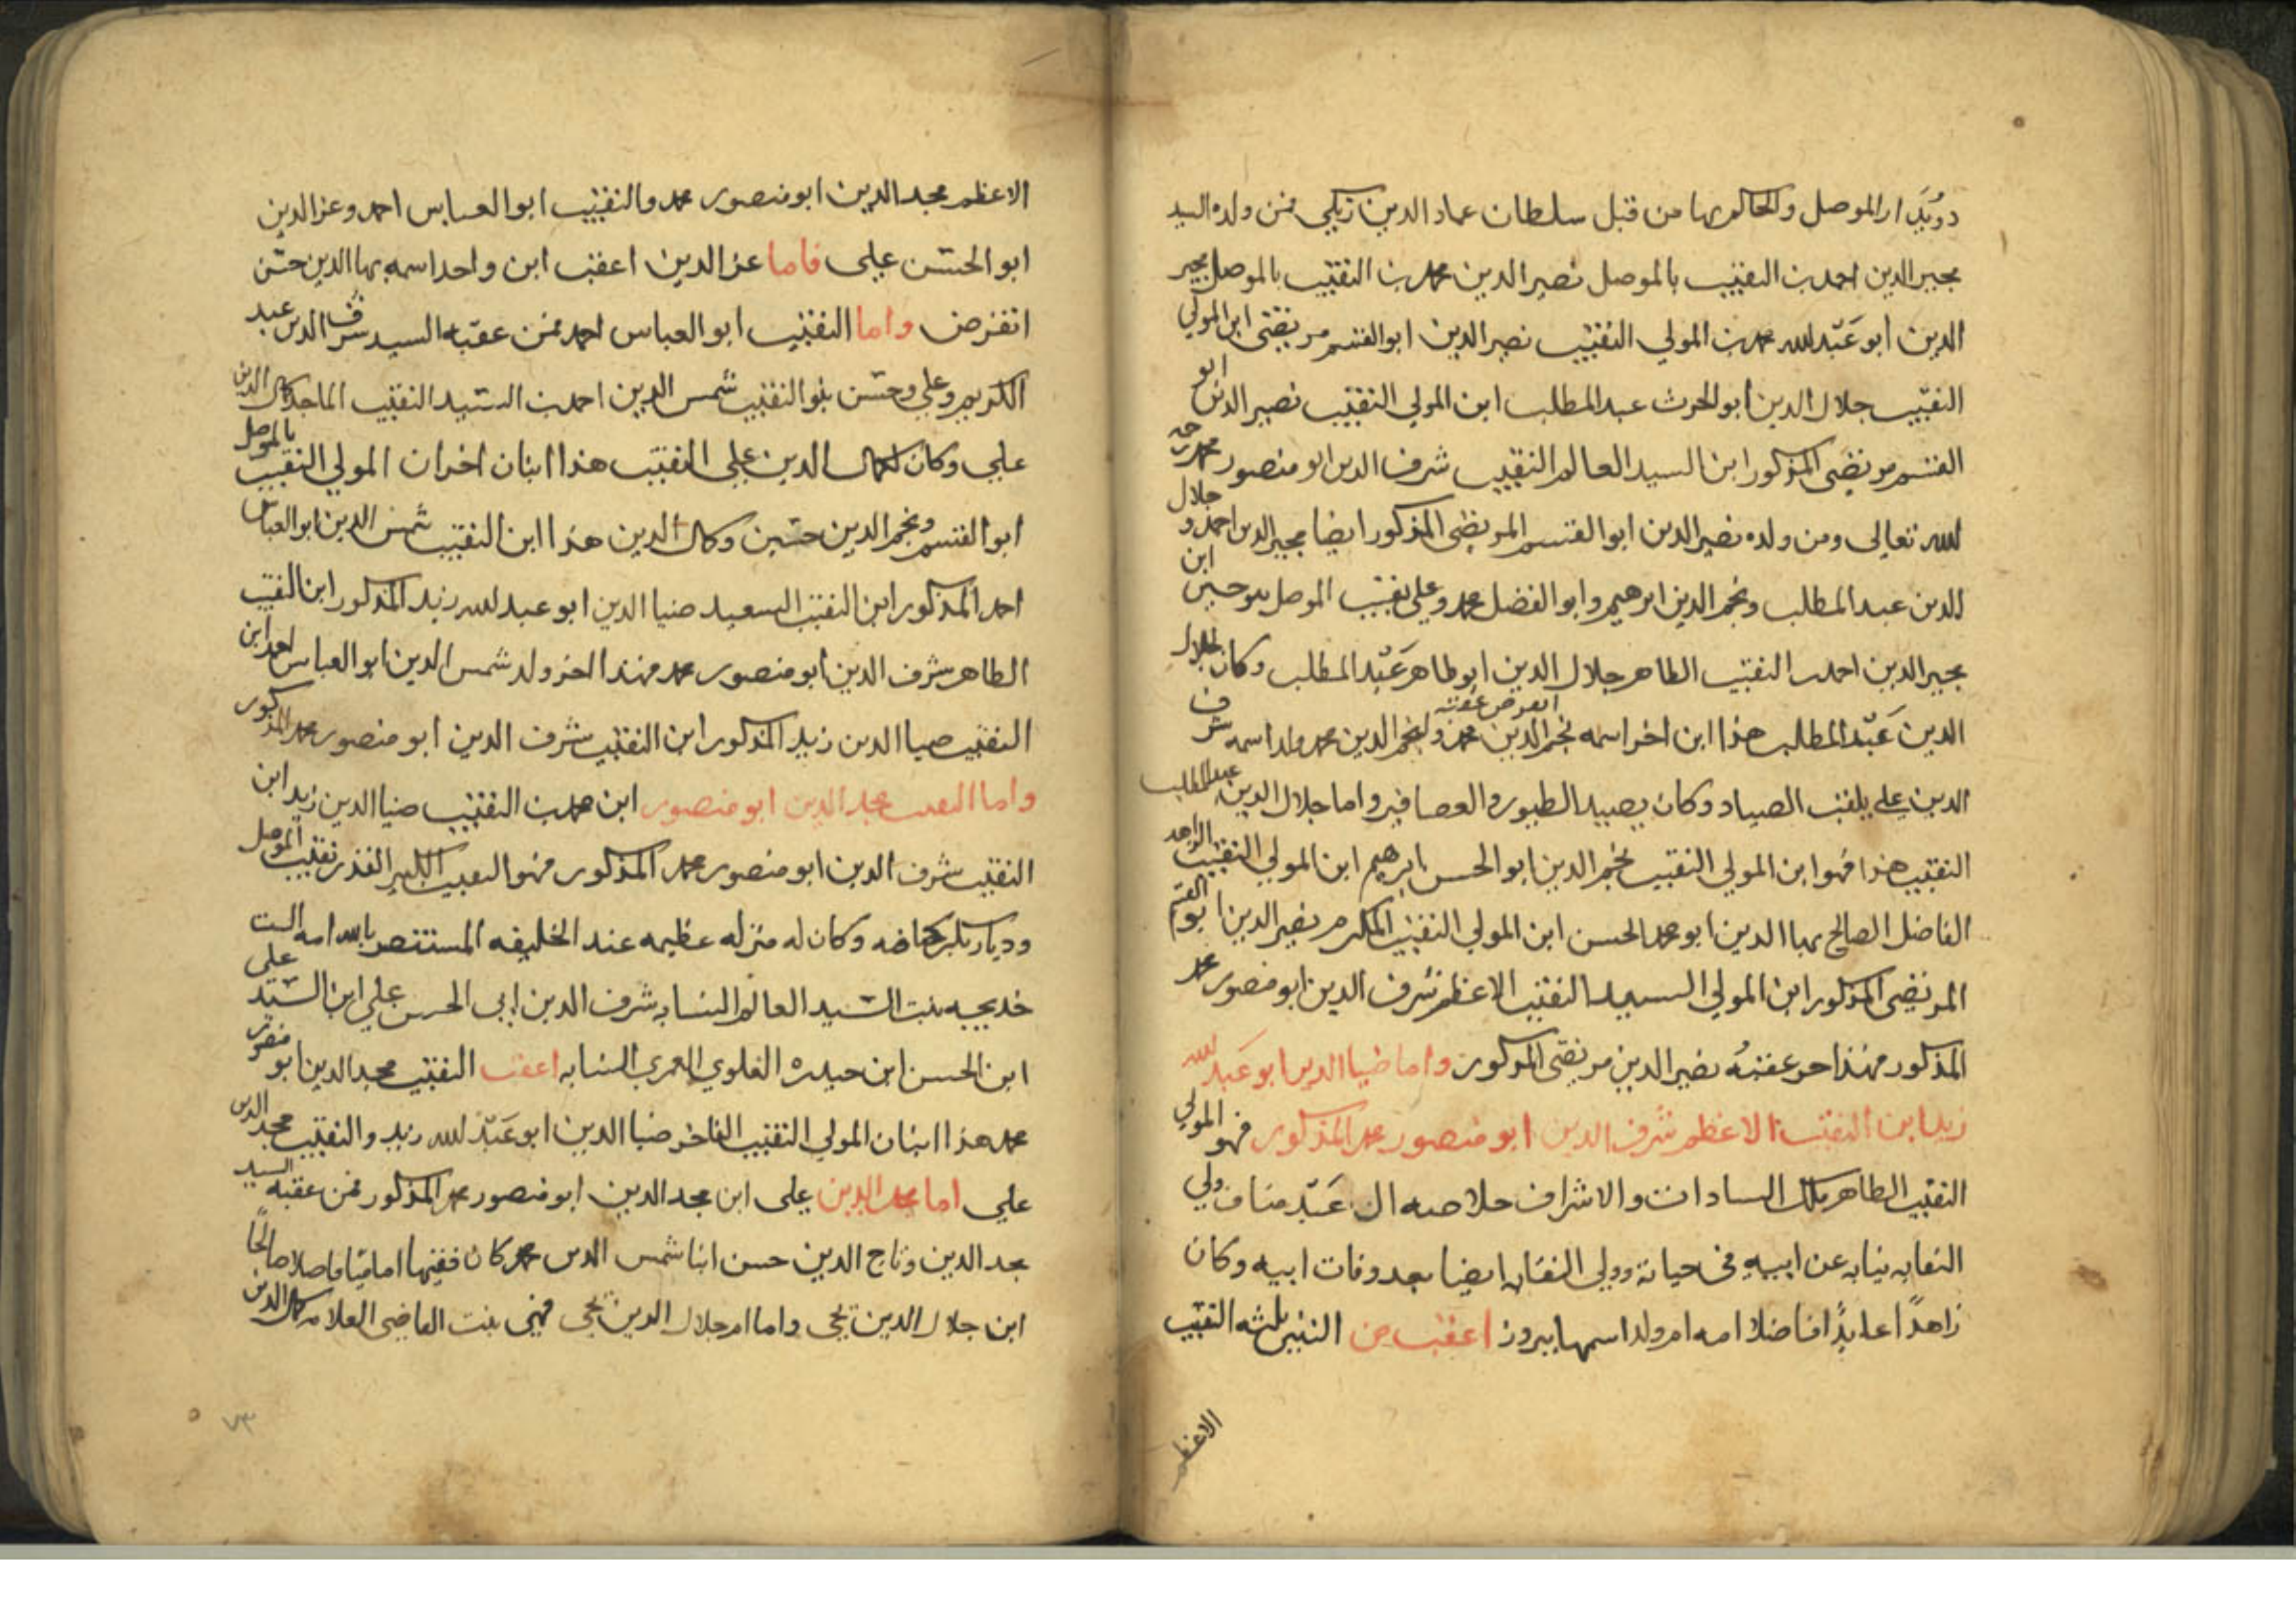 دويدار الموصل والحاكم بها من قبل سلطان عماد الدين زنكي فمن ولده السيد
مجير الدين احمد بن النقيب بالموصل نصير الدين محمد بن النقيب بالموصل مجير
الدين ابو عبد الله محمد بن المولي النقيب نصير الدين ابو القسم مرتضى ابن المولي
النقيب جلال الدين ابو الحرث عبد المطلب ابن المولي النقيب نصير الدين ابو
القسم مرتضى المذكور ابن السيد العالم النقيب شرف الدين ابو منصور محمد
لله تعالى ومن ولده نصير الدين ابو القسم المرتضى المذكور ايضا مجير الدين احمد و جلال
الدين عبد المطلب ونجم الدين ابرهيم وابو الفضل محمد وعلي نقيب الموصل بنو حسين ابن
مجير الدين احمد بن النقيب الطاهر جلال الدين ابو طاهر عبد المطلب وكان لجلال
انقرض عقبه
الدين عبد المطلب هذا ابن اخر اسمه نجم الدين محمد ولنجم الدين محمد ولد اسمه شرف
الدين علي يلقب الصياد وكان يصيد الطيور والعصافير واما جلال الدين عبد المطلب
النقيب هذا فهو ابن المولي النقيب نجم الدين ابو الحسن ابرهيم ابن المولي النقيب الزاهد
الفاضل الصالح بها الدين ابو محمد الحسن ابن المولي النقيب المكرم نصير الدين ابو القسم
المرتضى المذكور ابن المولي السيد النقيب الاعظم شرف الدين ابو منصور محمد
المذكور فهذا اخر عقبه نصير الدين مرتضى المذكور واما ضيا الدين ابو عبد الله
زيد ابن النقيب الاعظم شرف الدين ابو منصور محمد المذكور فهو المولي
النقيب الطاهر ملك السادات والاشراف خلاصه ال عبد مناف ولي
النقابه نيابه عن ابيه في حياته وولي النقابه ايضا بعد وفات ابيه وكان
زاهدًا عابدًا فاضلا امه ام ولد اسمها بيروز اعقب من البنين ثلثه النقيب
الاعظم
الاعظم مجد الدين ابو منصور محمد والنقيب ابو العباس احمد وعز الدين
ابو الحسن علي فاما عز الدين اعقب ابن واحد اسمه بها الدين حسن
انقرض واما النقيب ابو العباس احمد فمن عقبه السيد شرف الدين عبد
الكريم وعلي وحسن بنو النقيب شمس الدين احمد بن السيد النقيب الماجد كمال الدين
علي وكان لكمال الدين علي النقيب هذا ابنان اخران المولي النقيب بالموصل
ابو القسم ونجم الدين حسين وكمال الدين هذا ابن النقيب شمس الدين ابو العباس
احمد المذكور ابن النقيب السعيد ضيا الدين ابو عبد الله زيد المذكور ابن النقيب
الطاهر شرف الدين ابو منصور محمد فهذا اخر ولد شمس الدين ابو العباس احمد ابن
النقيب ضيا الدين زيد المذكور ابن النقيب شرف الدين ابو منصور محمد المذكور
واما النقيب مجد الدين ابو منصور ابن محمد بن النقيب ضيا الدين زيد ابن
النقيب شرف الدين ابو منصور محمد المذكور فهو النقيب الكبير القدر نقيب الموصل
وديار بكر وكان له منزله عظيمه عند الخليفه المستنصر بالله امه الست
خديجه بنت السيد العالم النسابه شرف الدين ابي الحسن علي ابن السيد علي
ابن الحسن ابن حيدره العلوي العمري النسابه اعقب النقيب مجد الدين ابو منصور
محمد هذا ابنان المولي النقيب الفاخر ضيا الدين ابو عبد الله زيد والنقيب مجد الدين
علي اما مجد الدين علي ابن مجد الدين ابو منصور محمد المذكور فمن عقبه السيد
مجد الدين وتاج الدين حسن ابنا شمس الدين محمد كان فقيها اماميا فاضلا صالحًا
ابن جلال الدين يحيى واما ام جلال الدين يحيى فهي بنت القاضي العلامه كمال الدين
٧٣